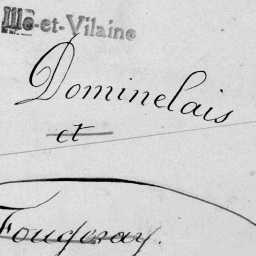 Ille-et-Vilaine
Dominelais
et
Fougeray.